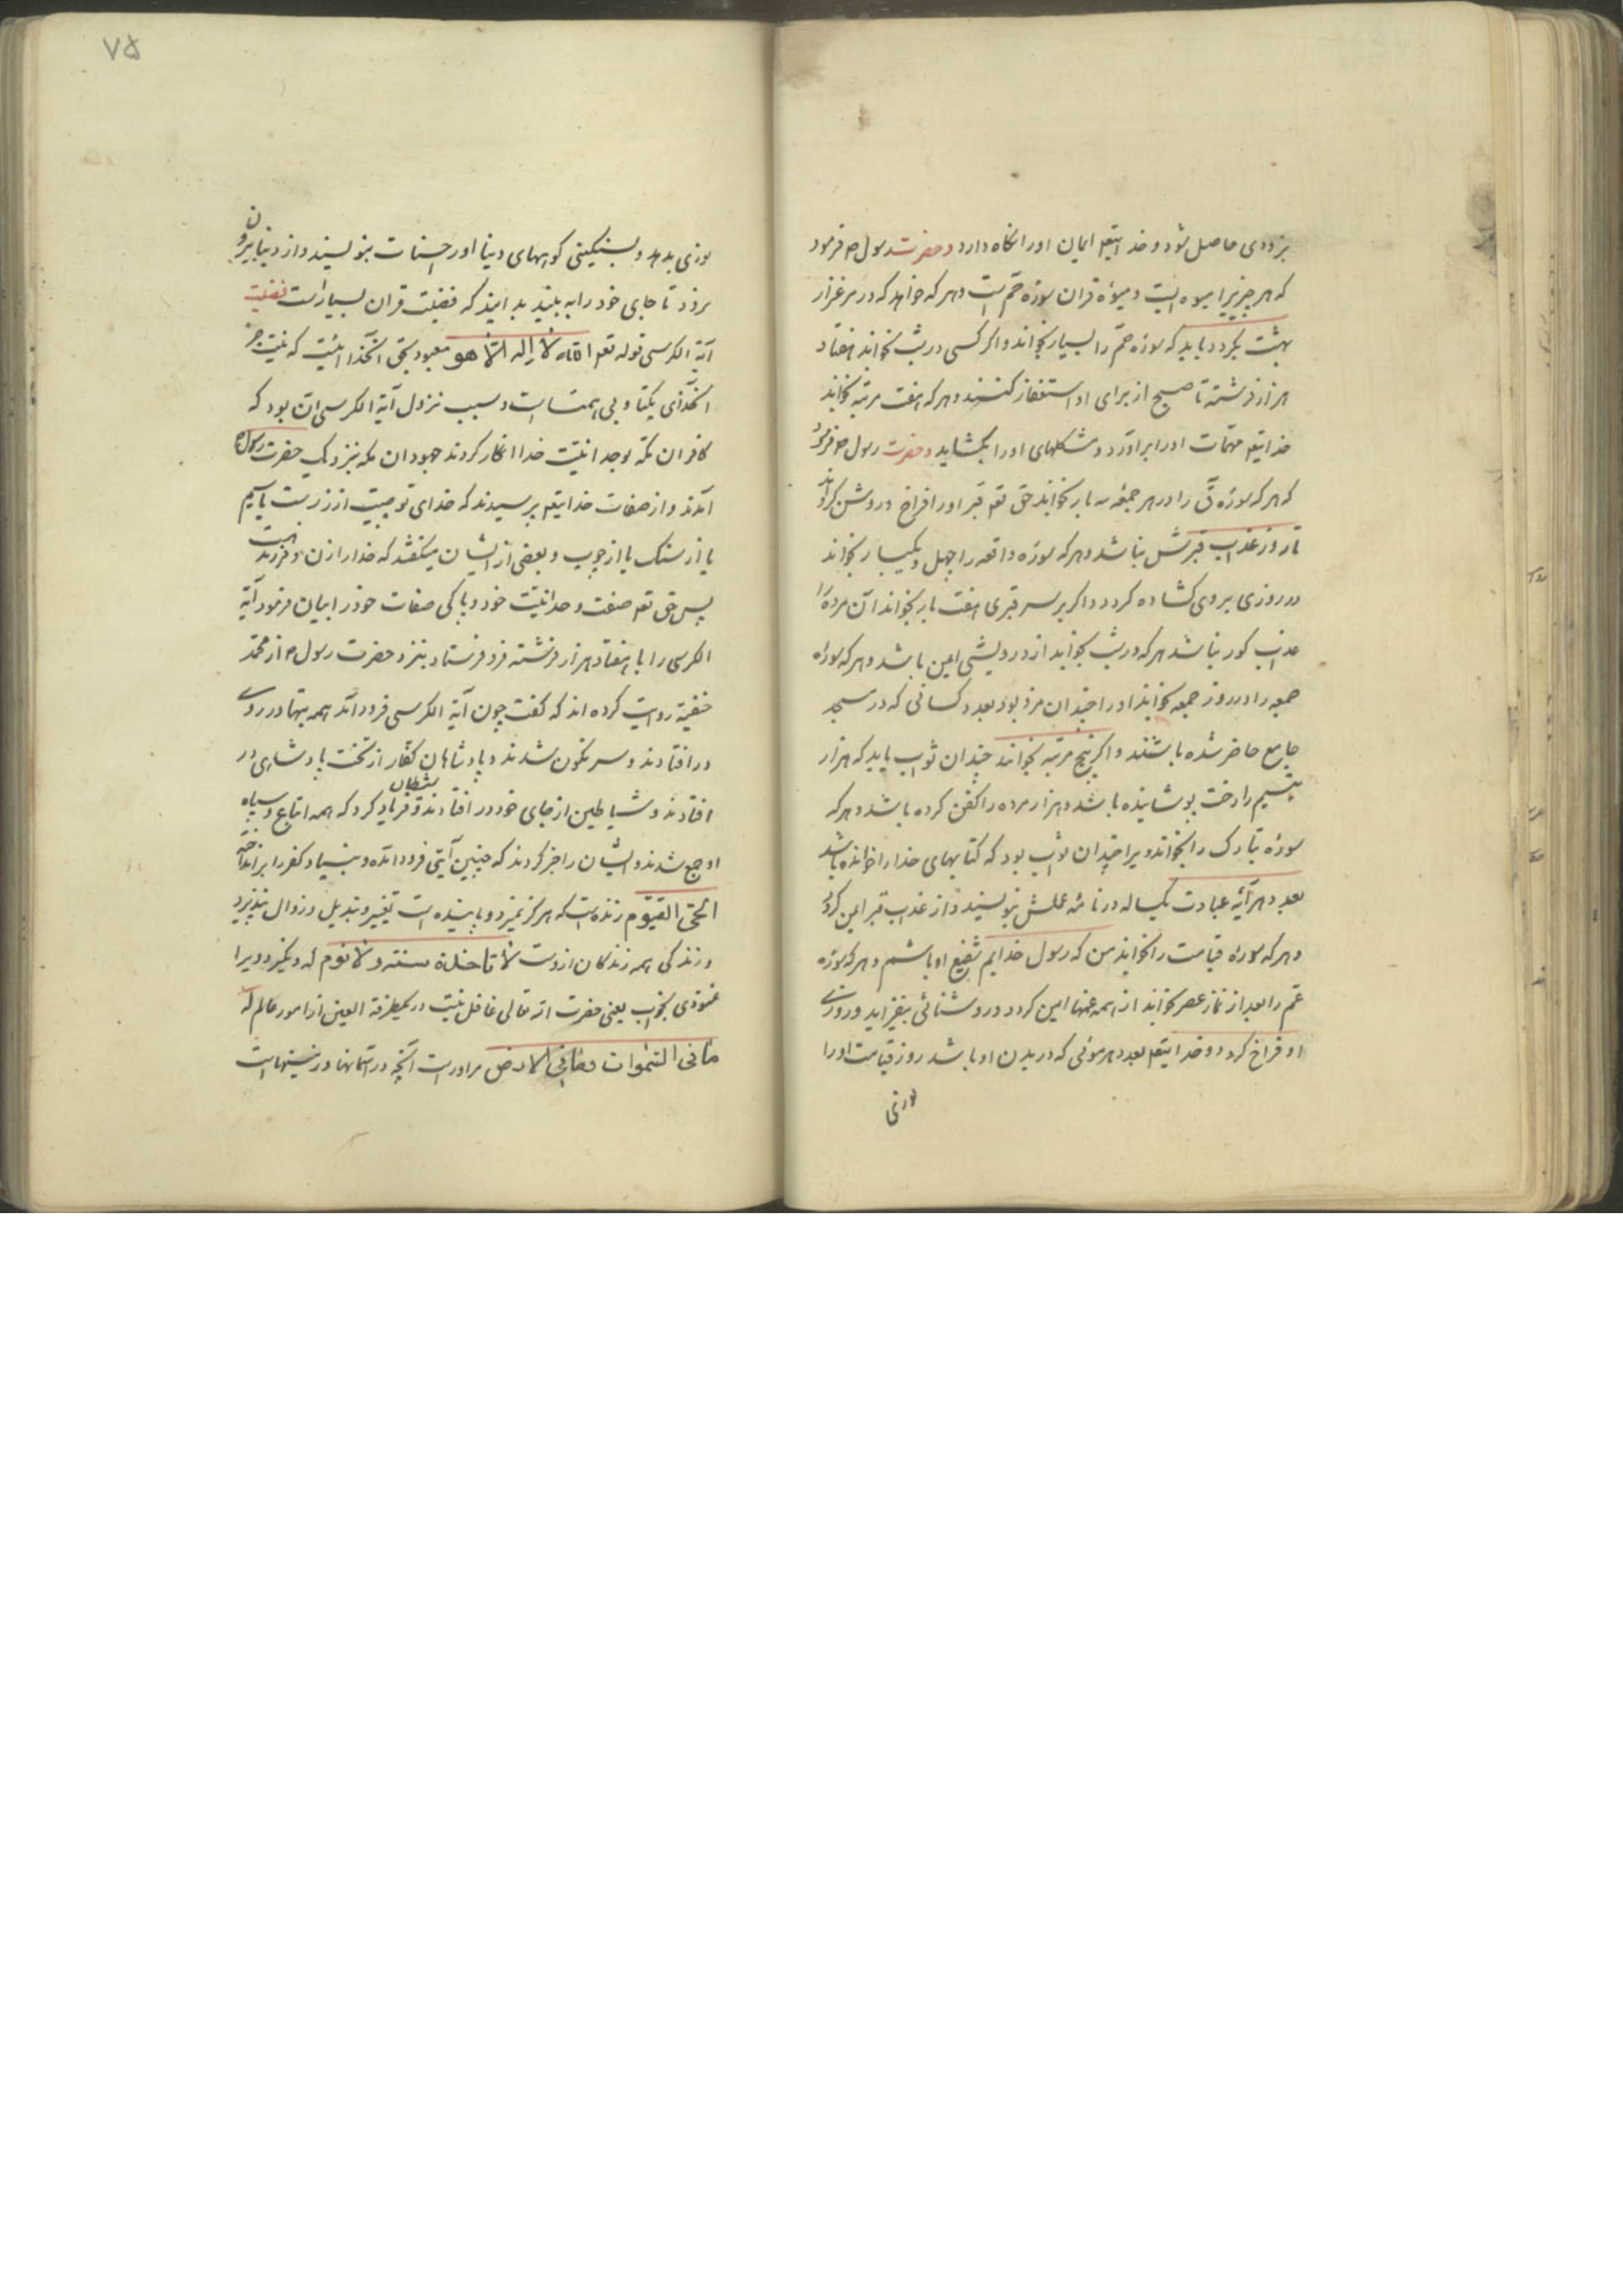 بزودی حاصل شود و خدایتعه ایمان اورا نگاه دارد و حضرت رسول م فرمود
که هر چیزیرا میوه ایست و میوۀ قران سوزه حم است و هر که خواهد که در مرغزار
بهشت بگردد باید که سوره حم را بسیار بخواند و اگر کسی در شب بخواند هفتاد
هزار فرشته تا صبح از برای او استغفار کنند و هر که هفت مرتبه بخواند
خدایتعه مهمات اورا براورد و مشکلهای اورا بگشاید و حضرت رسول م فرمود
که هر که سوره ق را در هر جمعه سه بار بخواند حق تعه قبر اورا فراخ و روشن گرداند
تا روز عذاب قبرش نباشد و هر که سوره واقعه را چهل و یکبار بخواند
در روزی بروی کشاده کردد و اکر بر سر قبری هفت بار بخواند آن مرده را
عذاب کور نباشد هر که در شب بخواند از درویشی امین باشد و هر که سوره
جمعه را در روز جمعه بخواند اورا چندان مزد بود بعدد کسانی که در مسجد
جامع حاضر شده باشند و اکر پنج مرتبه بخواند چندان ثواب یابد که هزار
یتیم را رخت پوشانیده باشد و هزار مرده را کفن کرده باشد و هر که
سوره تبارک را بخواند ویرا چندان ثواب بود که کتابهای خدا را خوانده باشد
بعدد هر آیه عبادت یکساله در نامه عملش بنویسند و از عذاب قبر ایمن کردد
و هر که سوره قیامت را بخواند من که رسول خدایم شفیع او باشم و هر که سوره
عم را بعد از نماز عصر بخواند از همه غمها امین کردد و روشنائی بیفزاید و روزی
او فراخ کردد و خدایتعه بعدد هر موئی که در بدن او باشد روز قیامت اورا
نوری
۷۵
نوری بدهد و بسنکینی کوههای دنیا اورا حسنات بنویسند و از دنیا بیرون
نرود تا جای خود را به بیند بدانید که فضیلت قران بسیار است فضیلت
آیة الکرسی قوله تعه الله لا اله الا هو معبود بحق انخدائیست که نیست جز
انخدای یکتا و بی همتاست و سبب نزول آیة الکرسی ان بود که
کافران مکه بوحدانیت خدا انکار کردند جهودان مکه بنزدیک حضرت رسول م
آمدند و از صفات خدایتعه پرسیدند که خدای تو چیست از زر است یا سیم
یا از سنک یا از چوب و بعضی از ایشان میکفتند که خدا را زن و فرزند هست
پس حق تعه صفت وحدانیت خود و پاکی صفات خود را بیان فرمود آیة
الکرسی را با هفتاد هزار فرشته فرو فرستاد بنزد حضرت رسول م از محمد
حنفیه روایت کرده اند که گفت چون آیة الکرسی فرود آمد همه بتها در روی
در افتادند و سر نکون شدند و پادشاهان کفار از تخت پادشاهی در
افتادند و شیاطین از جای خود در افتادند و شیطان فریاد کرد که همه اتباع و سپاه
او جمع شدند و ایشان را خبر کردند که چنین آیتی فرود آمده و بنیاد کفر را برانداخته
الحی القیوم زنده است که هرکز نمیرد و پاینده است تغییر و تبدیل و زوال نپذیرد
و زندکی همه زندکان ازوست لا تاخذه سنة و لا نوم که نکیرد ویرا
غنودی بخواب یعنی حضرت الله تعالی غافل نیست در یکطرفة العین از امور عالم له
ما فی السموات و ما فی الارض مر اوراست آنچه در آسمانها و در زمینهاست